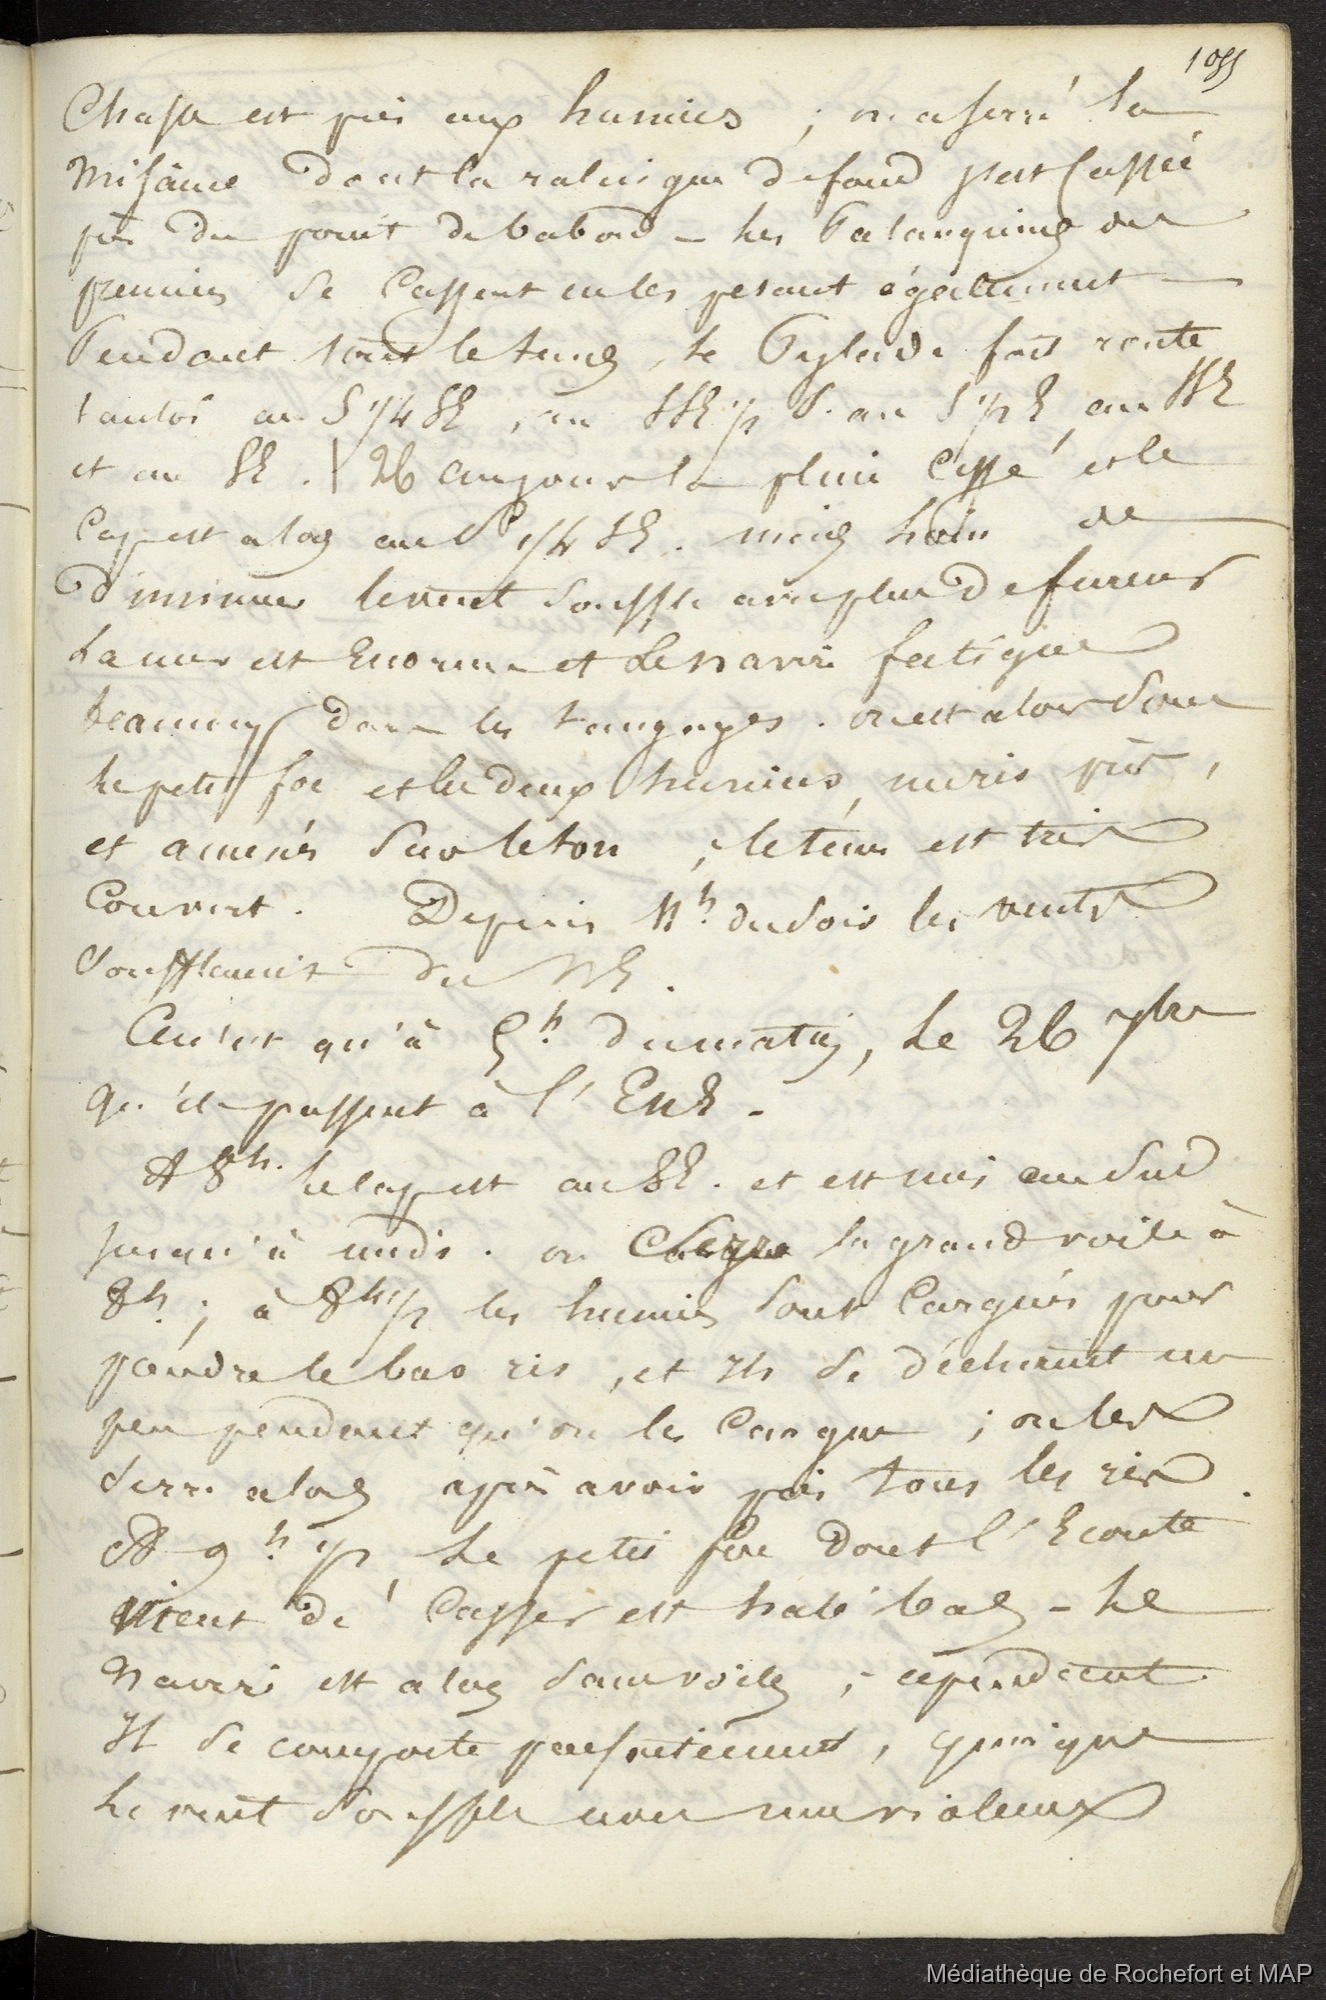 1055
Chasse est pris aux huniers ; on a serré la
Misaine dont la ralingue de fond s'est cassée
près du point de babord – les Palanquins des
premiers se cassent en les pesant également –
Pendant tout le tems, le Pylade fait route
tantot au S 1/4 SE, au SSE 1/2 S. au S 1/2 E, au SSE
et au SE. | 26 au jour la pluie cessé et le
Cap est alors au S 1/4 SE. mais loin de
diminuer le vent souffle avec plus de fureur
La mer est Enorme et le navire fatigue
beaucoup dans les tangages. on est alors sous
le petit foc et les deux huniers, au ris pris,
et amenés sur le ton ; le tems est très
Couvert. Depuis 11h. du soir les vents
soufflaient du NE.
Ce n'est qu'à 5h. du matin, le 26 7bre
qu'ils passent à l'ENE.
A 8h. le cap est au SE. et est mis au Sud
jusqu'à midi. on Cargue la grand voile à
8h. ; à 8h 1/2 les huniers sont Cargués pour
prendre le bas ris, et Ils se déchirent un
peu pendant qu'on les Cargue ; on les
serre alors après avoir pris tous les ris.
A 9h 1/2 Le petit foc dont l'Ecoute
vient de Casser est halé bas – Le
navire est alors sans voiles ; cependant
Il se comporte parfaitement, quoique
le vent souffle avec une violence
Médiathèque de Rochefort et MAP